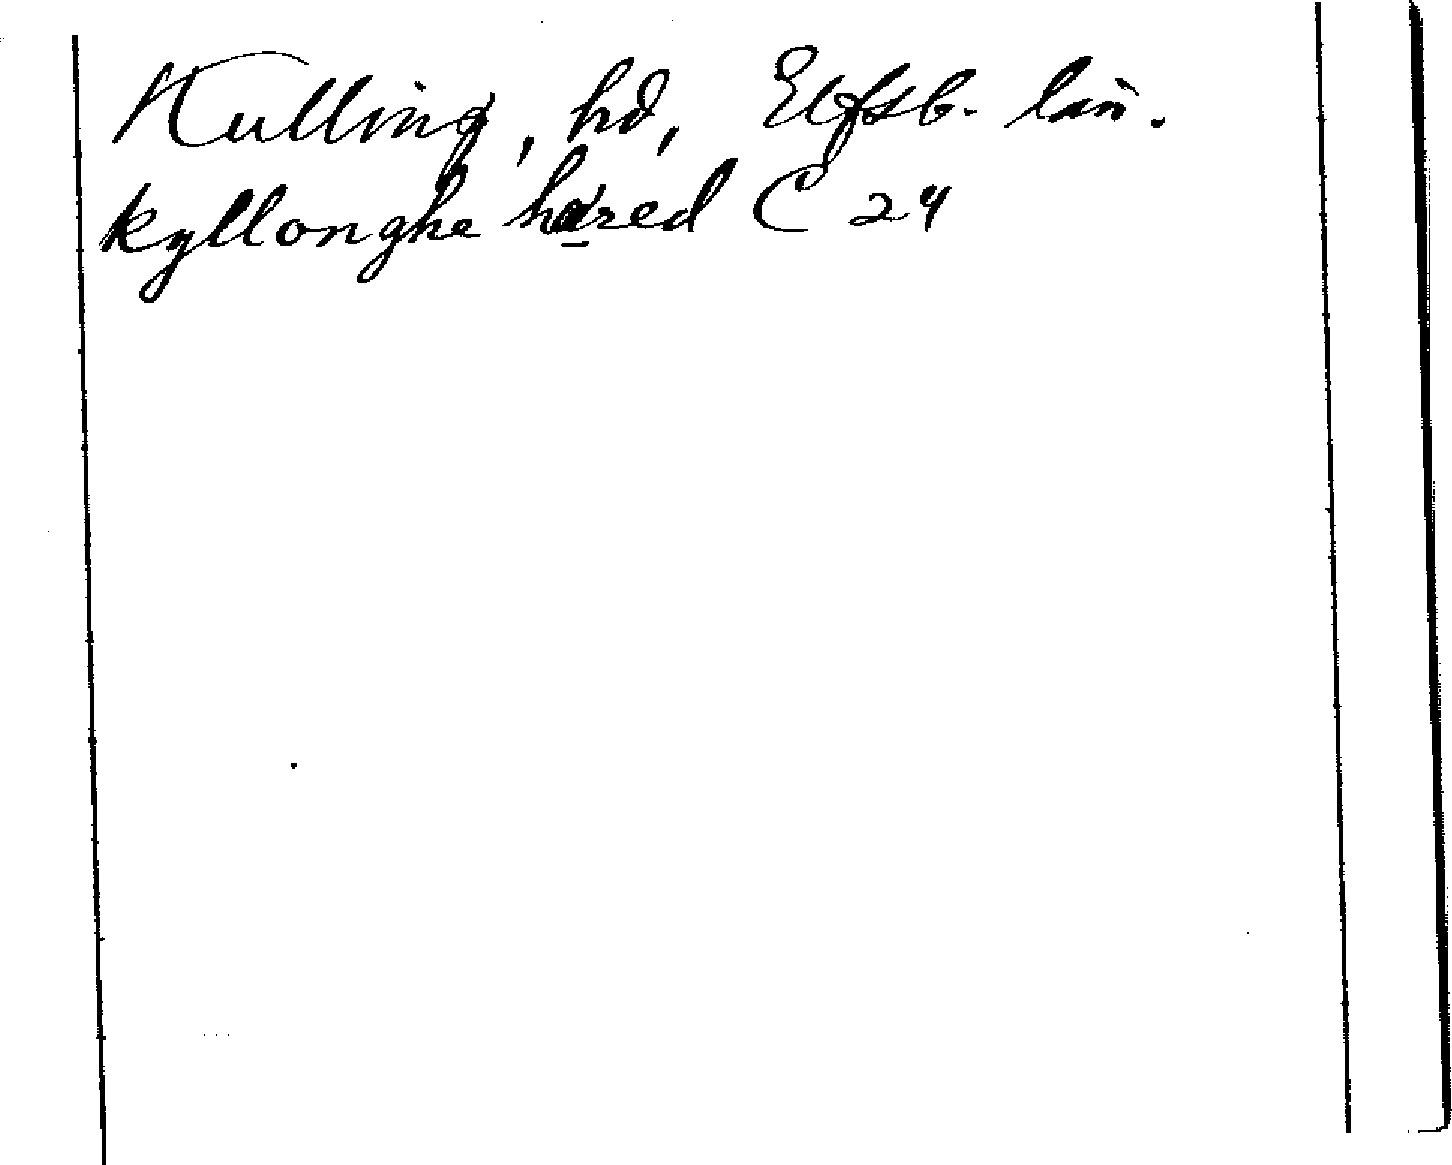 Kulling, hd, Elfsb. län.
kyllonghe hæred C 24